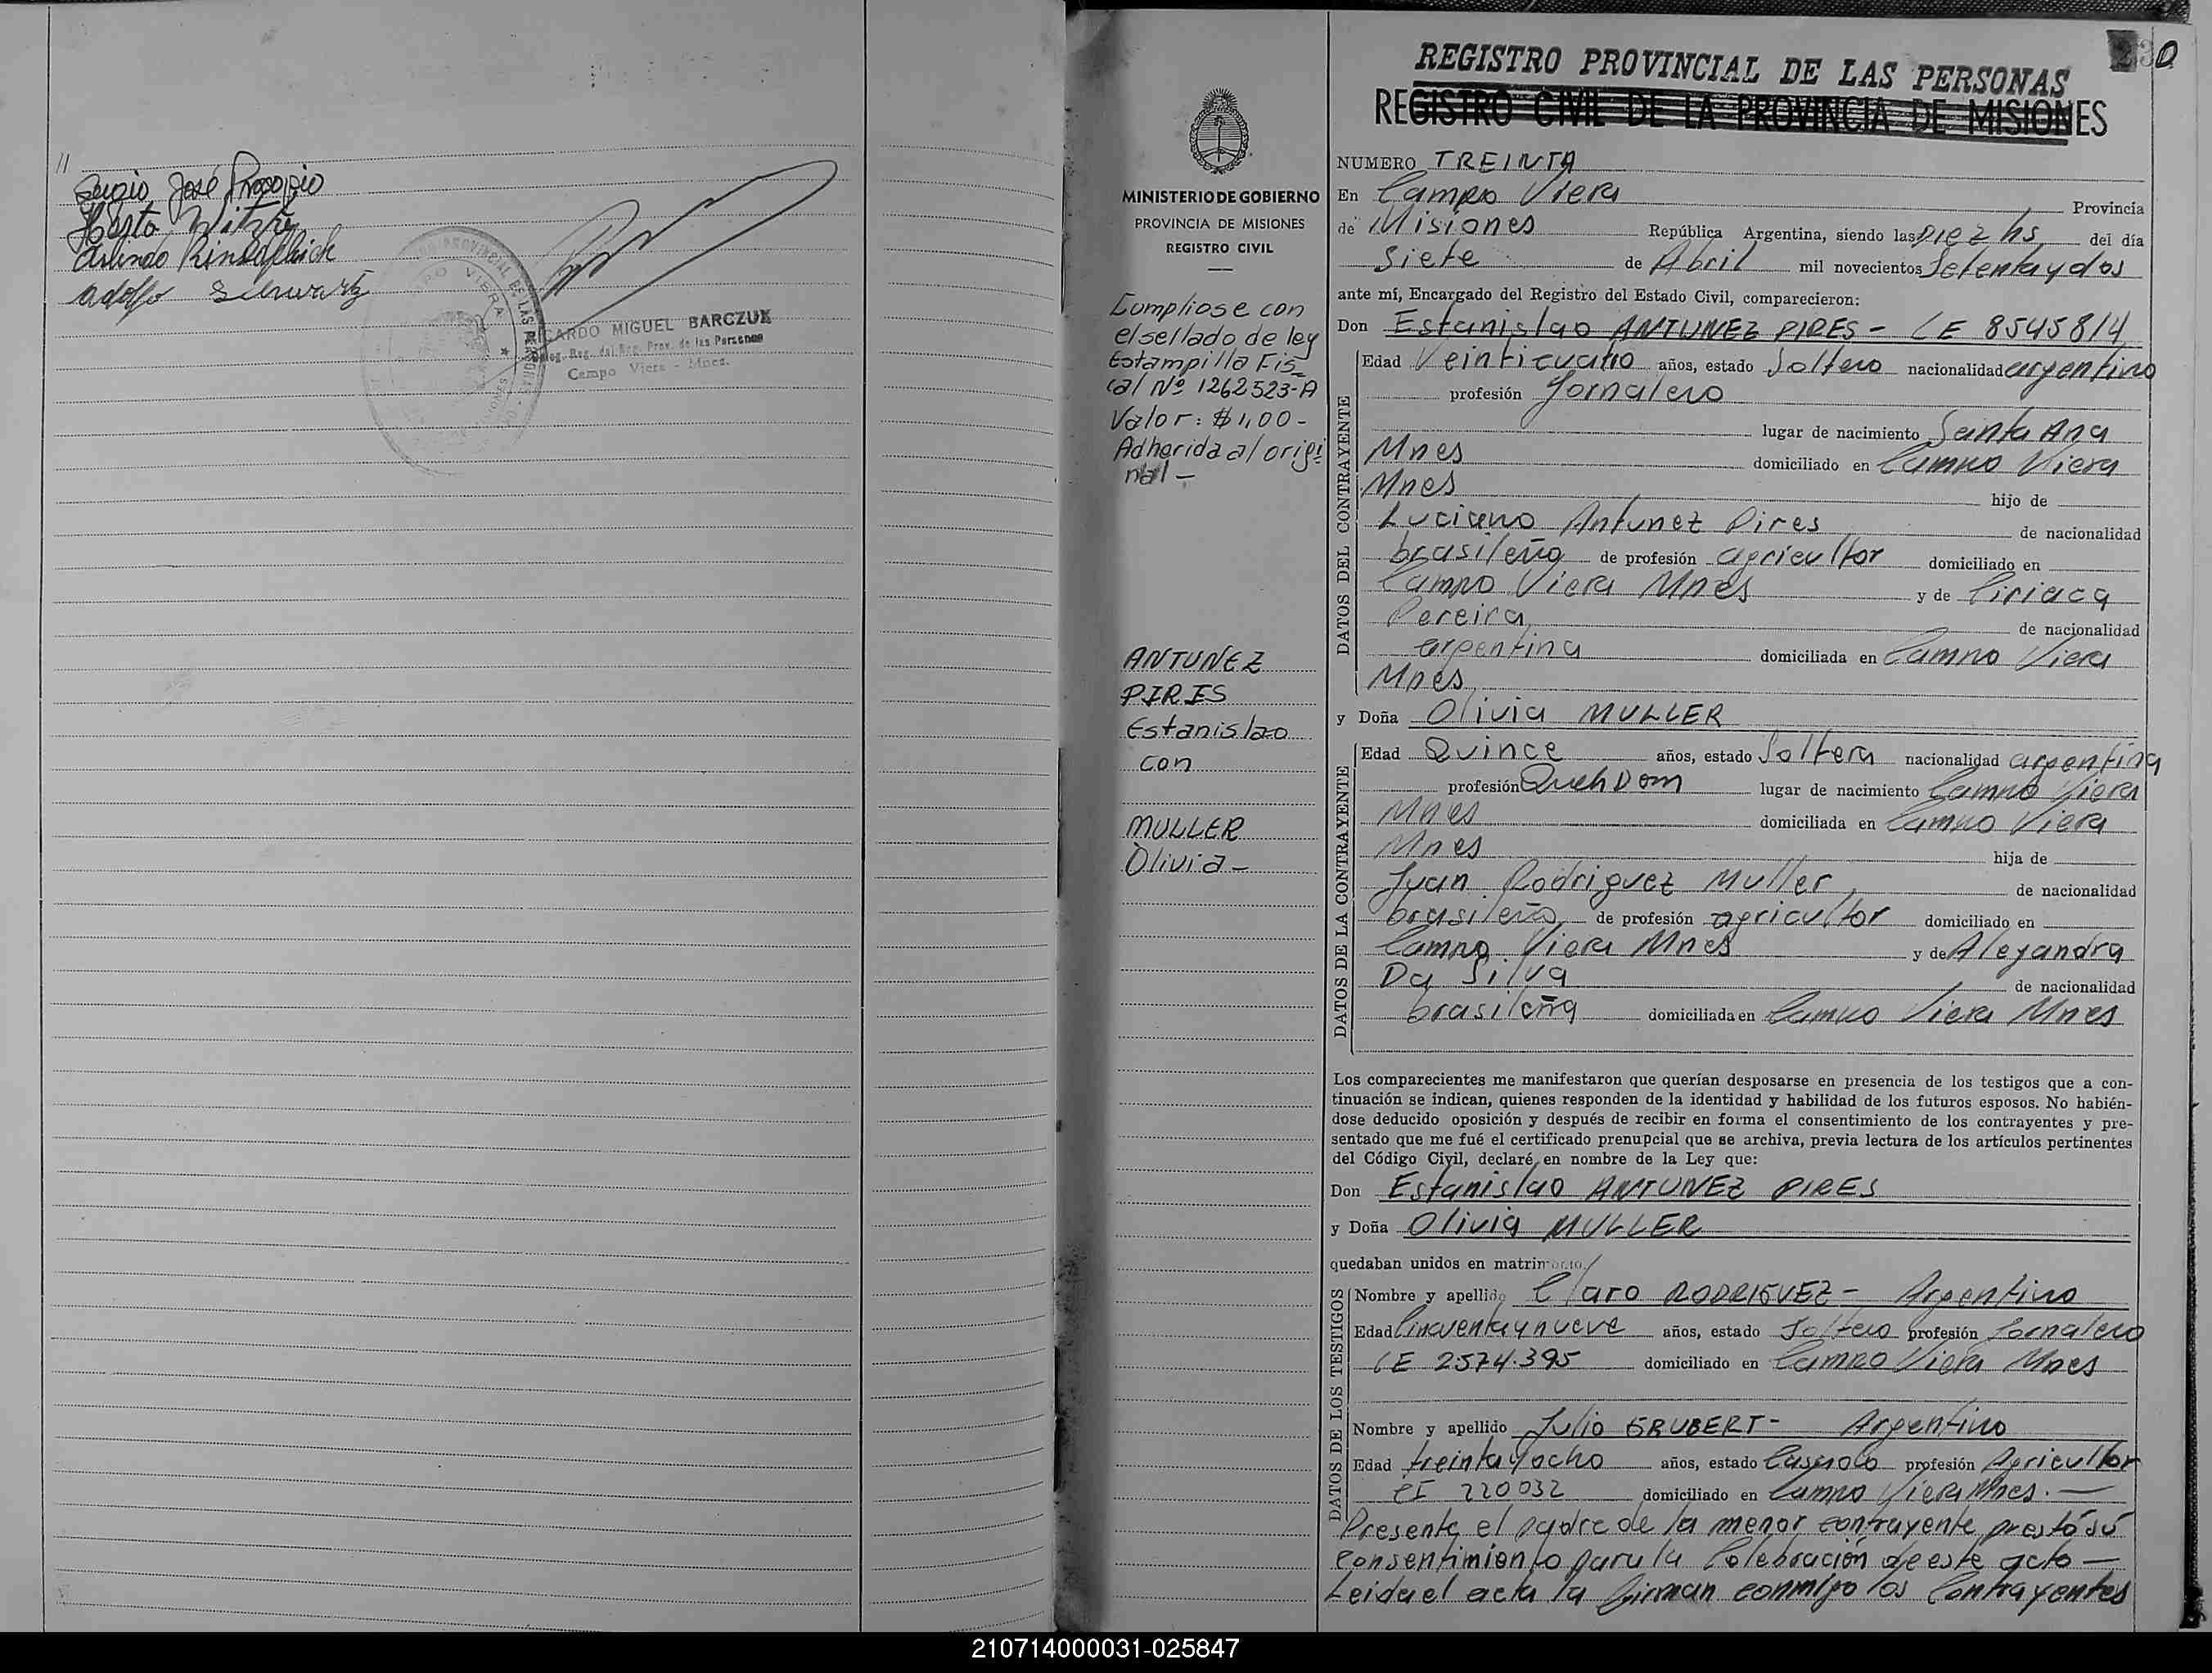 //
Sergio José Procopio
Herta Witzke
Arlindo
Adolfo Schwartz
CARDO MIGUEL BARCZUK
Deleg. Reg. del Reg. Prov. de las Personas
Campo Viera - Mnes.
REGISTRO PROVINCIAL DE LAS PERSONAS
REGISTRO CIVIL DE LA PROVINCIA DE MISIONES
230
MINISTERIO DE GOBIERNO
PROVINCIA DE MISIONES
REGISTRO CIVIL
Cumpliose con
el sellado de ley
Estampilla Fis_
cal Nº 1262523-A
Valor: $ 1,00-
Adherida al origi
nal -
ANTUNEZ
PIRES
Estanislao
con
MULLER
Olivia -
NUMERO TREINTA
En Campo Viera Provincia
de Misiones República Argentina, siendo las Diez hs del día
Siete de Abril mil novecientos Setenta y dos
ante mí, Encargado del Registro del Estado Civil, comparecieron:
Don Estanislao ANTUNEZ PIRES - LE 8545814
DATOS DEL CONTRAYENTE
Edad Veinticuatro años, estado Soltero nacionalidad argentino
profesión Jornalero
lugar de nacimiento Santa Ana
Mnes domiciliado en Campo Viera
Mnes hijo de
Luciano Antunez Pires de nacionalidad
brasileño de profesión agricultor domiciliado en
Campo Viera Mnes y de Ciriaca
Pereira de nacionalidad
argentina domiciliada en Campo Viera
Mnes
y Doña Olivia MULLER
DATOS DE LA CONTRAYENTE
Edad Quince años, estado Soltera nacionalidad argentina
profesión Queh Dom lugar de nacimiento Campo Viera
Mnes domiciliada en Campo Viera
Mnes hija de
Juan Rodriguez Muller de nacionalidad
brasileño de profesión agricultor domiciliado en
Campo Viera Mnes y de Alejandra
Da Silva de nacionalidad
brasileña domiciliada en Campo Viera Mnes
Los comparecientes me manifestaron que querían desposarse en presencia de los testigos que a con-
tinuación se indican, quienes responden de la identidad y habilidad de los futuros esposos. No habién-
dose deducido oposición y después de recibir en forma el consentimiento de los contrayentes y pre-
sentado que me fué el certificado prenupcial que se archiva, previa lectura de los artículos pertinentes
del Código Civil, declaré en nombre de la Ley que:
Don Estanislao ANTUNEZ PIRES
y Doña Olivia MULLER
quedaban unidos en matrimonio
DATOS DE LOS TESTIGOS
Nombre y apellido Claro RODRIGUEZ - Argentino
Edad Cincuenta y nueve años, estado Soltero profesión Jornalero
LE 2574.395 domiciliado en Campo Viera Mnes
Nombre y apellido Julio GRUBERT - Argentino
Edad treinta y ocho años, estado Casado profesión Agricultor
CI 220032 domiciliado en Campo Viera Mnes. —
Presente el padre de la menor contrayente prestó su
consentimiento para la Celebración de este acto —
Leida el acta la firman conmigo los Contrayentes
210714000031-025847